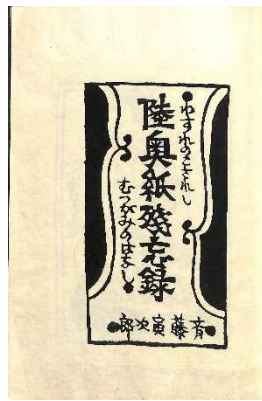 わすれのこされし
陸奥紙殘忘録
むつがみのはなし
斉藤寅次郎